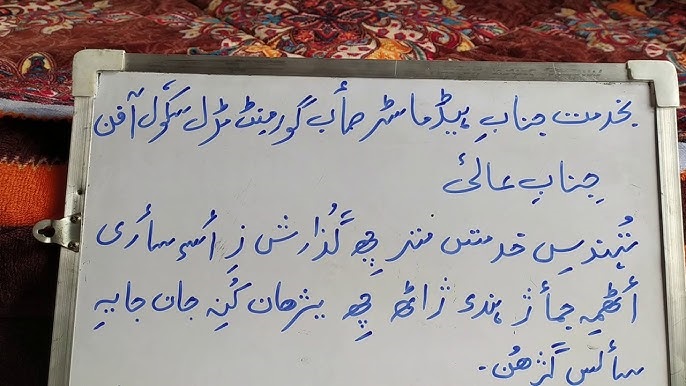 بخدمت جنابِ ہیڈماسٹر صٲب گورمینٹ مڈل سکوٗل آفن
جنابِ عالیٔ
تُہندِس خدمتس منٛز چھِ گُذارش زِ أسۍ سٲری
أٹھمہِ جمٲژ ہٕندۍ ژاٹھ چھِ یژھان کُنہِ جان جایہِ
سٲلس گژھُن۔